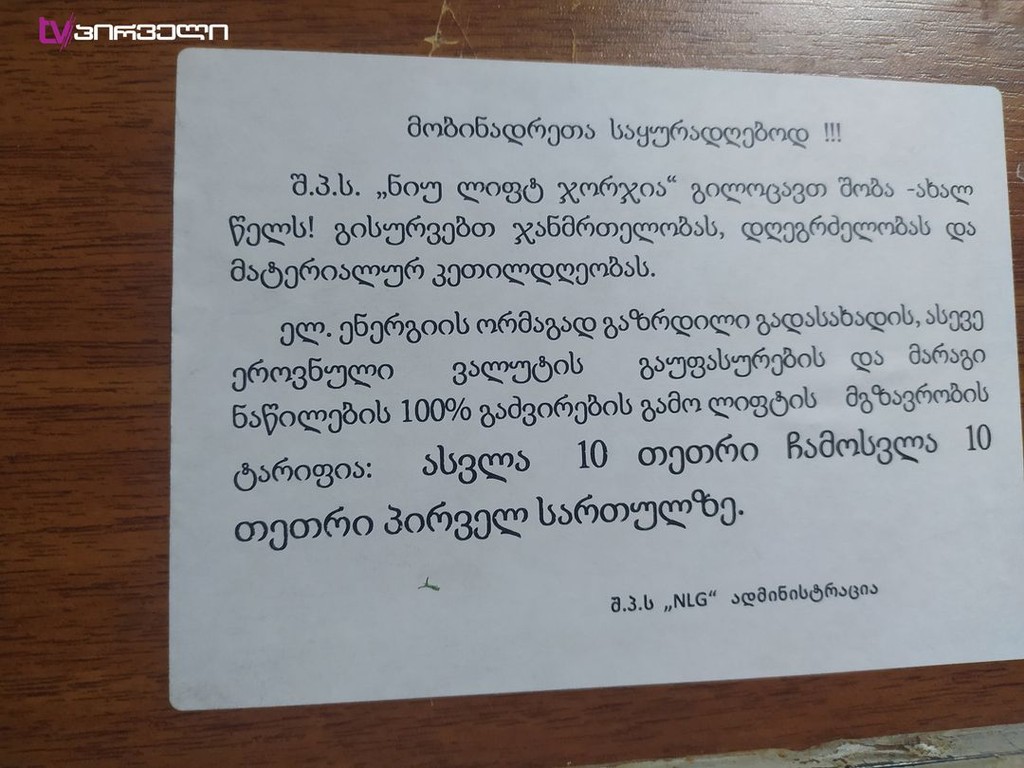 tvპირველი
მობინადრეთა საყურადღებოდ !!!
შ.პ.ს. „ნიუ ლიფტ ჯორჯია“ გილოცავთ შობა -ახალ
წელს! გისურვებთ ჯანმრთელობას, დღეგრძელობას და
მატერიალურ კეთილდღეობას.
ელ. ენერგიის ორმაგად გაზრდილი გადასახადის, ასევე
ეროვნული ვალუტის გაუფასურების და მარაგი
ნაწილების 100% გაძვირების გამო ლიფტის მგზავრობის
ტარიფია: ასვლა 10 თეთრი ჩამოსვლა 10
თეთრი პირველ სართულზე.
შ.პ.ს „NLG“ ადმინისტრაცია